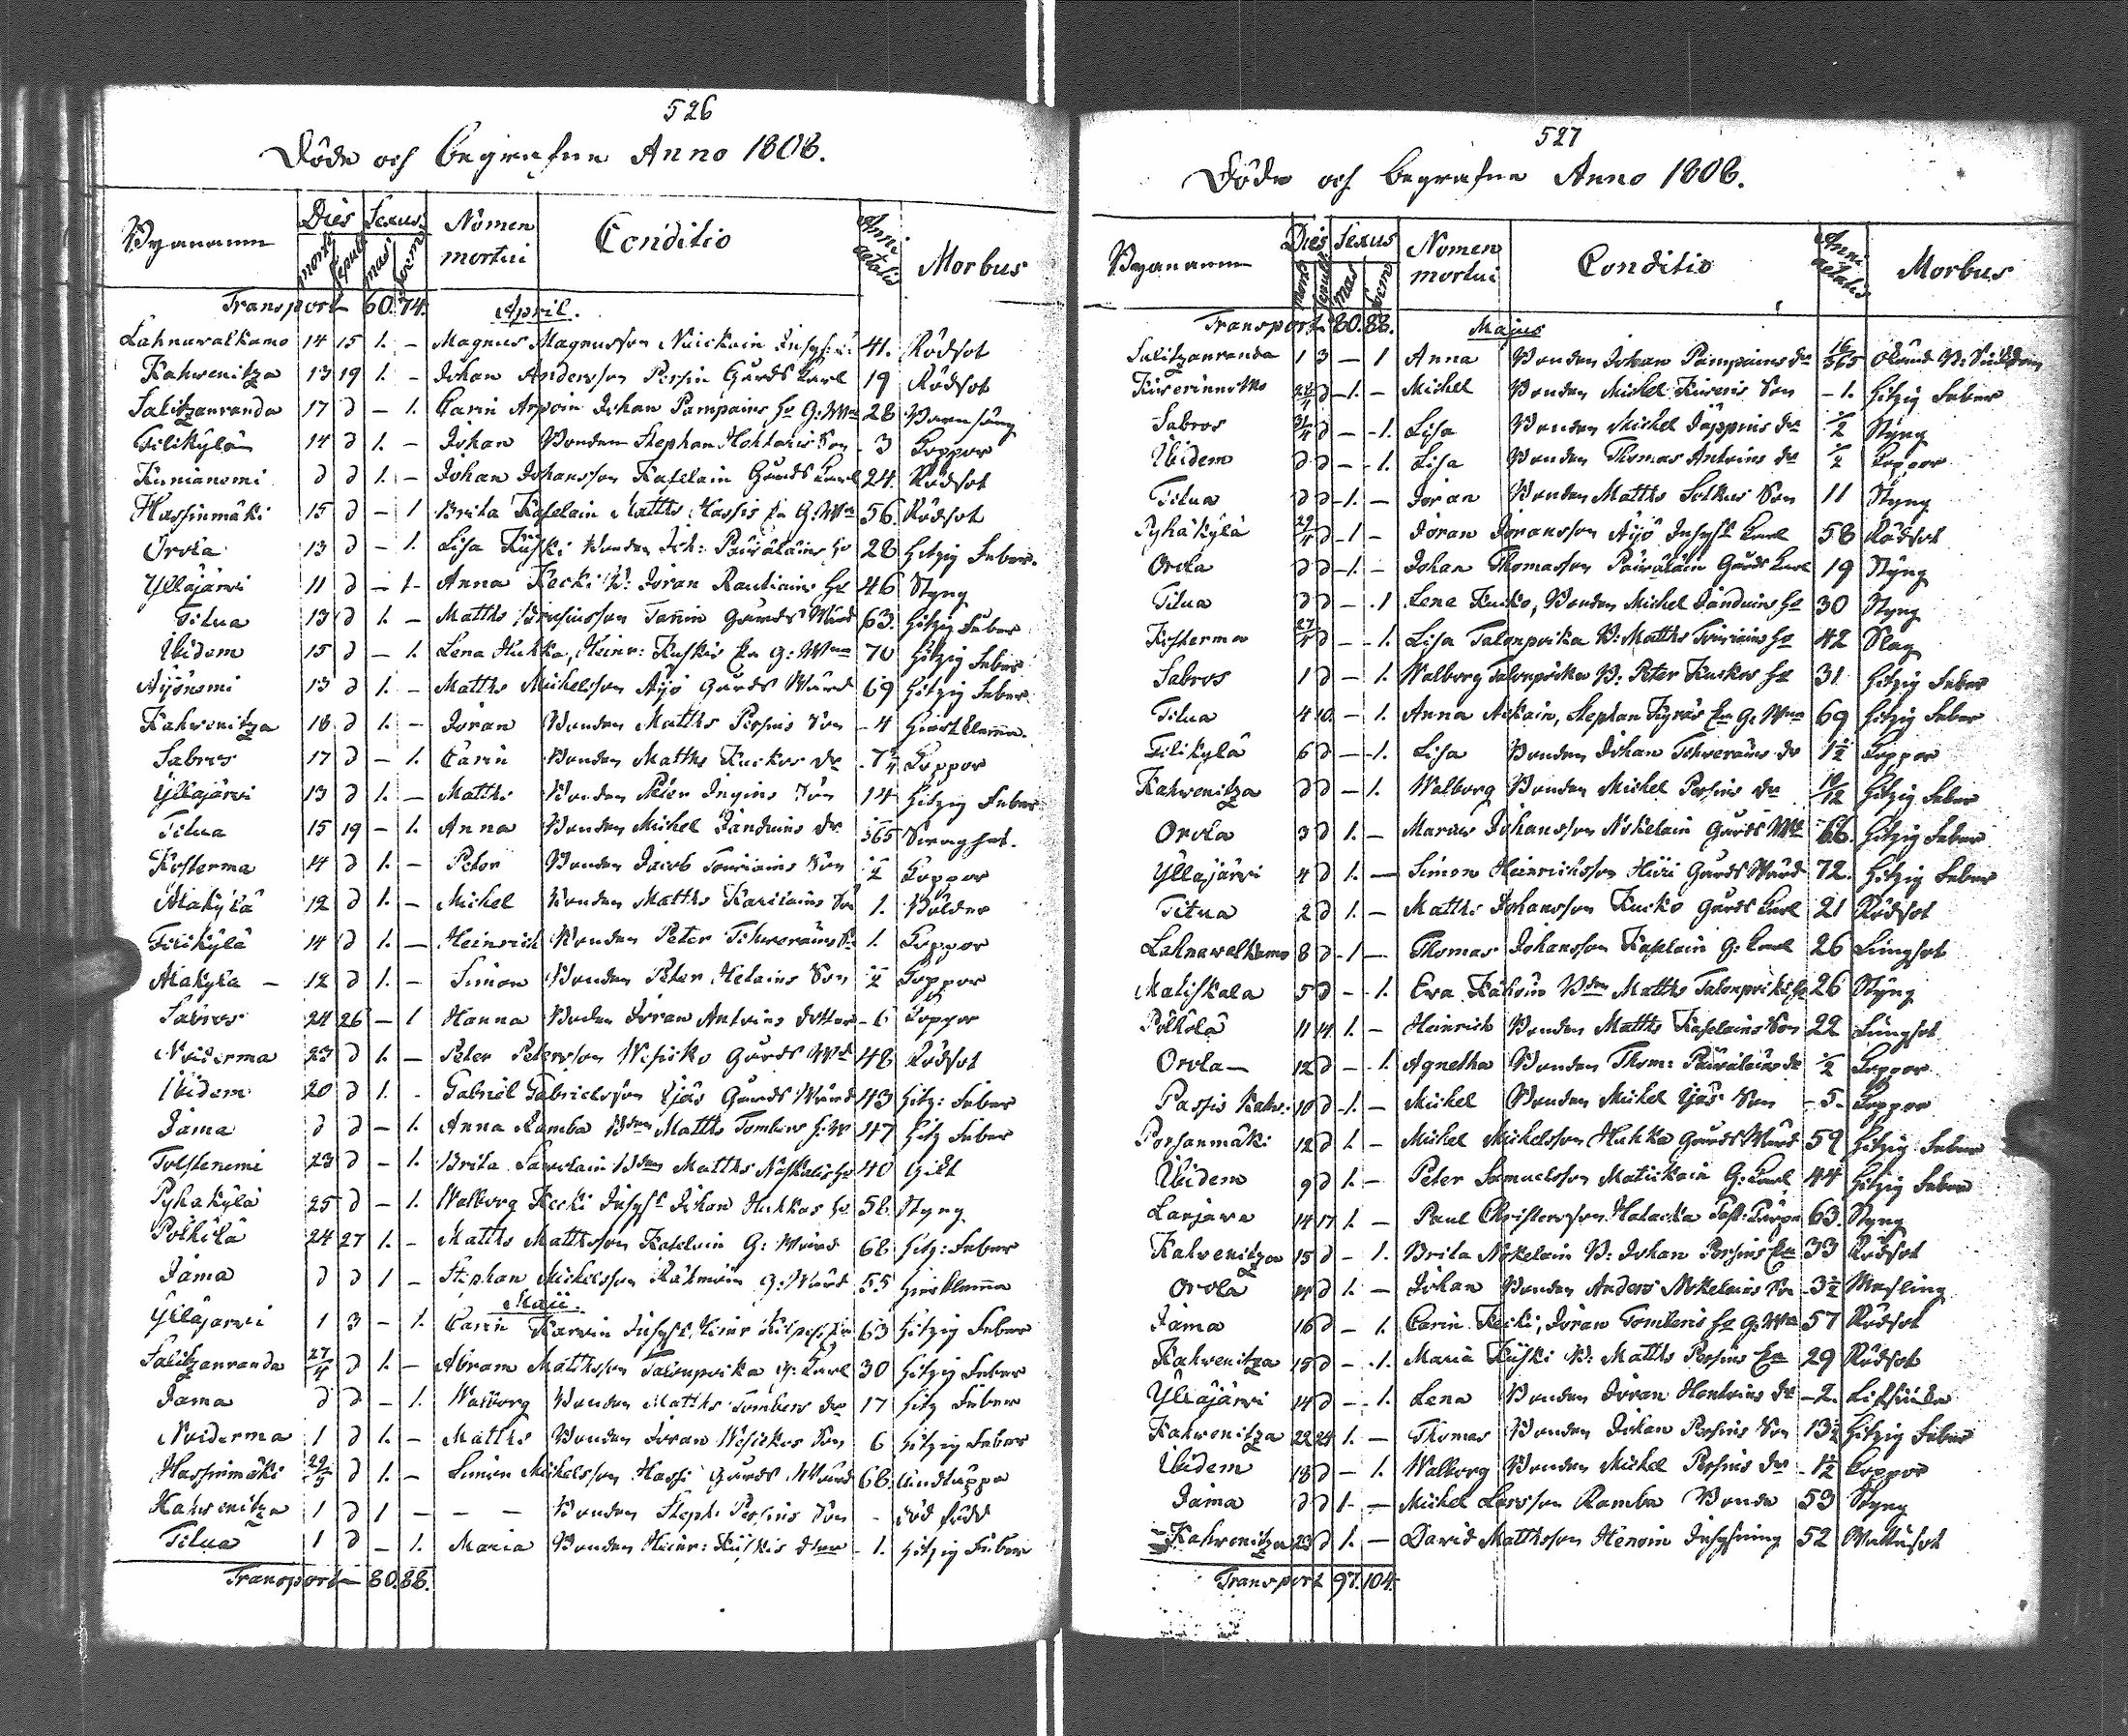 526
Döde och begrafne Anno 1808.
Byanamn Dies Sexus Nomen mortui Conditio Anni aetatis Morbus
mortis sepult mas foem
Transport 60. 74. April.
Lahnavalkamo 14 15 1. - Magnus Magnusson Nuickain Inhyses: 41. Rödsot
Kahwenitza 13 19 1. - Johan Andersson Persin Gårds Karl 19 Rödsot
Salitzanranda 17 d - 1. Carin Arpoin Johan Pampains Ho G: Wna 28 Barnsäng
Tilikylä 14 d 1. - Johan Bonden Stephan Hoktaris Son - 3 Koppor
Kunianomi d d 1. - Johan Johansson Kaselain Gårds Karl 24. Rödsot
Hassinmäki 15 d - 1 Brita Kaselain Matths Hassis Ea G: Wna 56. Rödsot
Orola 13 d - 1. Lisa Kiiski Bonden Joh: Päiväläins Ho 28 Hetzig Feber.
Ylläjärvi 11 d - 1 - Anna Kecki B: Jöran Rautiains Ho 46 Styng
Titua 13 d 1. - Matths Brusiusson Tanin Gårds Wärd 63. Hetzig Feber
Ibidem 15 d - 1. Lena Hukka, Heinr: Kuskis Ea G: Wna 70 Hetzig Feber
Äijönemi 13 d 1. - Matths Michelsson Äijö Gårds Wärd 69 Hetzig Feber
Kahwenitza 18 d 1. - Jöran Bonden Matths Persins Son - 4 Hiertklemma.
Sabros 17 d - 1. Carin Bonden Matths Kuckos dr - 7/4 Koppor
Ylläjärvi 13 d 1. - Matths Bonden Peter Ingins Son 14 Hetzig Feber
Titua 15 19 - 1. Anna Bonden Michel Jänduins dr 365 Swaghet.
Kosterma 14 d 1. - Peter Bonden Jacob Touriains Son 1/2 Koppor
Alakylä 12 d 1. - Michel Bonden Matths Karilains Son 1. Bölder
Tilikylä 14 d 1. - Heinrich Bonden Peter Tchweräins So 1. Koppor
Alakylä - 12 d 1. - Simon Bonden Peter Helains Son 1/2 Koppor
Sabros 24 26 - 1 Hanna Bonden Jöran Antoins dotter - 6 Koppor
Noiderma 23 d 1. - Peter Petersson Wesicko Gårds Wd 48 Rödsot
Ibidem 20 d 1. - Gabriel Gabrielsson Ejäs Gårds Wärd 43 Hetz: Feber
Jama d d - 1. Anna Ramba Bden Matths Tombers H: W 47 Hetz Feber
Tolstenemi 23 d - 1. Brita Savolain Bden Matths Näskalis Ho 40 Gikt
Pyhäkylä 25 d - 1. Walborg Kecki Inhyss Johan Hukkas Ho 58. Styng
Polkilä 24 27 1. - Matths Matthsson Kaselain G: Wärd 68 Hetz: Feber
Jama d d 1 - Stephan Michelsson Räkmöin G: Wärd 55 Hierklemma
Maii.
Ylläjärvi 1 3 - 1. Carin Karvin Inhyss Heinr Kilpess Ea 63 Hetzig Feber
Salitzanranda 27/4 d 1. - Abram Matthsson Talonpoika G: Karl 30 Hetzig Feber
Jama d d - 1. Walborg Bonden Matths Tombers dr 17 Hetz Feber
Noiderma 1 d 1. - Matths Bonden Jöran Wesickos Son 6 Hetzig Feber
Hassinmäki 29/4 d 1. - Simon Michelsson Hassi Gårds Wärd 68. Andtäppa
Kahwenitza 1 d 1 - - - Bonden Steph: Persins Son - död född
Titua 1 d - 1. Maria Bonden Heinr: Kuskis dter - 1. Hetzig Feber
Transport 80. 88.
527
Döde och begrafne Anno 1808.
Byanamn Dies Sexus Nomen mortui Conditio Anni aetatis Morbus
mortis sepult mas foem
Transport 80. 88. Majus
Salitzanranda 1 3 - 1 Anna Bonden Johan Pampains dr 16/365
Kiverinnemo d - 1. - Michel Bonden Michel Kiveris Son - 1. Hetzig Feber
Sabros d - - 1. Lisa Bonden Michel Jäppins dr 1/2 Styng
Ibidem d d - - 1. Lisa Bonden Thomas Antoins dr 1/2 Koppor
Titua d d - 1. - Jöran Bonden Matths Solkus Son 11 Styng
Pyhäkylä 29/4 d - 1 - Jöran Joransson Äijö Inhyss Karl 58 Rödsot
Orola d d - 1. - Johan Thomasson Päiväläin Gårds Karl 19 Styng
Titua d d - . 1 Lena Kucko, Bonden Michel Jänduins Ho 30 Styng
Kosterma 27/4 d - - 1. Lisa Talonpoika B: Matths Touriains Ho 42 Slag
Sabros 1 d - 1. Walborg Talonpoika B: Peter Kuckos Ho 31 Hetzig Feber
Titua 4 10. - 1. Anna Ackain, Stephan Kyräs Ea G: Wna 69 Hetzig Feber
Tilikylä 6 d - - 1. Lisa Bonden Johan Tchweräins dr 1 1/2 Koppor
Kahwenitza d d - 1. Walborg Bonden Michel Persins dr 10/12 Hetzig Feber
Orola 3 d 1. - Marcus Johansson Nokelain Gårds Wd 66. Hetzig Feber
Ylläjärvi 4 d 1. - Simon Heinrichsson Hiiri Gårds Wärd 72. Hetzig Feber
Titua 2 d 1. - Matths Johansson Kucko Gårds Karl 21 Rödsot
Lahnavalkamo 8 d - 1 - Thomas Johansson Kaselain G: Karl 26 Lungsot
Maliskala 5 d - - 1. Eva Kähöin Bden Matths Talonpoikas Ho 26 Styng
Polkola 11 14 1. - Heinrich Bonden Matths Kaselains Son 22 Lungsot
Orola - 12 d - . 1. Agnetha Bonden Thom: Päiväläins dr 1/2 Koppor
Passis Kahw: 10 d - 1. - Michel Bonden Michel Ejäs Son - 5. Koppor
Porsanmäki 12 d 1. - Michel Michelsson Hukka Gårds Wärd 59 Hetzig Feber
Ibidem 9 d 1. - Peter Samuelsson Matickain G: Karl 44 Hetzig Feber
Larjava 14 17 1. - Paul Christersson Halacka 63. Styng
Kahwenitza 15 d - 1. Brita Nokelain B: Johan Persins Ea 33 Rödsot
Orola 14 d 1. - Johan Bonden Anders Nokelains Son - 3 1/2 Mesling
Jama 16 d - 1. Carin Kecki, Jöran Tomberis Ho G: Wna 57 Rödsot
Kahwenitza 15 d - . 1. Maria Kiiski B: Matths Persins Ea 29 Rödsot
Ylläjärvi 14 d - . 1. Lena Bonden Jöran Hontoins dr - 2.
Kahwenitza 22 24 1. - Thomas Bonden Johan Persins Son 13 1/2 Hetzig Feber
Ibidem 18 d - 1. Walborg Bonden Michel Persins dr - 1 1/2 Koppor
Jama d d 1 - - Michel Larsson Ramba Bonde 53 Styng
Kahwenitza 23 d 1. - David Matthsson Henoin Inhysning 52 Wattusot
Transport 97. 104.